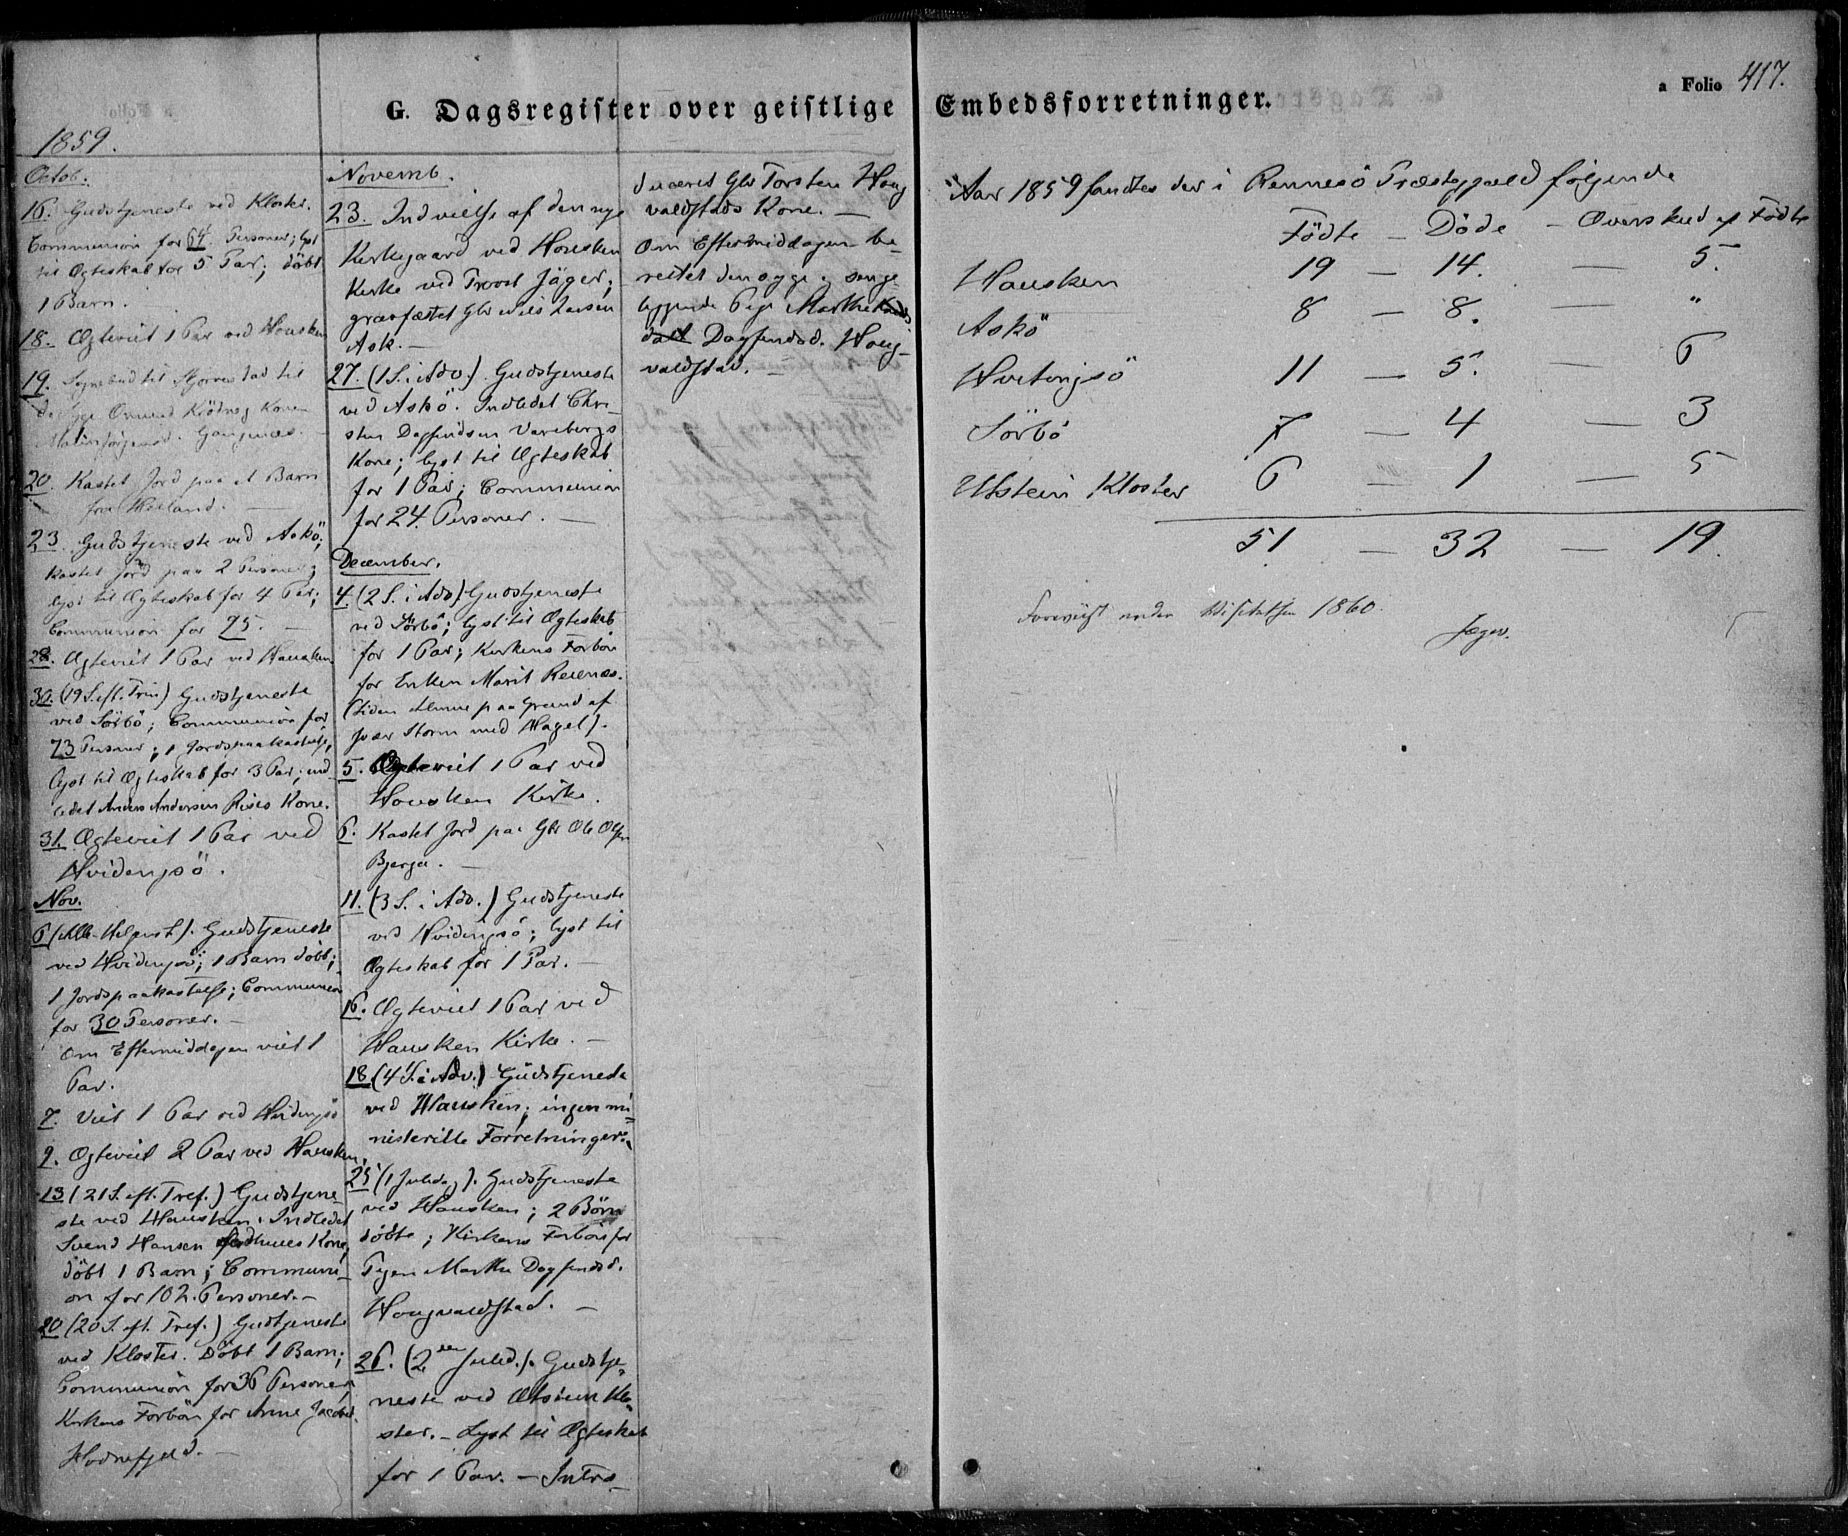 G. Dagsregister over geistlige Embedsforretninger.
a Folio 417.
1859.
Octob.
16. Gudstjeneste ved Kloster.
Communion for 64 Personer; lyst
til Ægteskab for 5 Par; döbt
1 Barn.
18. Ægteviet 1 Par ved Hausken
19. Sognebud til til
Syge Kone
20. Kastet Jord paa et Barn
fra
23. Gudstjeneste ved Askö;
kastet Jord paa 2 Personer;
lyst til Ægteskab for 4 Par;
Communion for 75. —
28. Ægteviet 1 Par ved Hausken
30. (19 S. eft. Trin) Gudstjeneste
ved Sörbö; Communion for
73 Personer; 1 Jordspaakastelse,
lyst til Ægteskab for 3 Par; ind
ledet Anders Andersen Kone.
31. Ægteviet 1 Par ved
Hvidingsö.
Nov.
6 (Alle-Helgensd.). Gudstjeneste
ved Hvidingsö; 1 Barn döbt;
1 Jordspaakastelse; Communion
for 30 Personer. —
Om Eftermiddagen viet 1
Par.
7. Viet 1 Par ved Hvidingsö
9. Ægteviet 2 Par ved Hausken.
13 (21 S. eft. Tref.) Gudstjene-
ste ved Hausken. Indledet
Svend Hansen Kone,
döbt 1 Barn; Communi-
on for 102. Personer. —
20 (20 S. eft. Tref.) Gudstjeneste
ved Kloster. Döbt 1 Barn;
Communion for 36 Personer,
Kirkens Forbön for Anne Jacobsd.
Hodnefjeld. —
Novemb.
23. Indvielse af den nye
Kirkegaard ved Hausken
Kirke ved Provst Jäger;
gravfæstet Gbr Nils Larsen
Ask. —
27. (1 S. i Adv.). Gudstjeneste
ved Askö. Indledet Chri-
sten Dagfindsen Varebergs
Kone; lyst til Ægteskab
for 1 Par; Communion
for 24. Personer. —
December.
4. (2 S. i Adv) Gudstjeneste
ved Sörbö; lyst til Ægteskab
for 1 Par; Kirkens Forbön
for Enken Marit Reienæs.
(Siden Hjemme paa Grund af
svær Storm med Hagel).
5. Ægteviet 1 Par ved
Hausken Kirke.
6. Kastet Jord paa Gbr Ole Olsen
Bjerga. —
11. (3 S. i Adv.) Gudstjeneste
ved Hvidingsö; lyst til
Ægteskab for 1 Par. —
16. Ægteviet 1 Par ved
Hausken Kirke. —
18 (4 S. i Adv.) Gudstjeneste
ved Hausken; ingen mi-
nisterielle Forretninger.
25 (1 Juledag). Gudstjeneste
ved Hausken; 2 Börn
döbte; Kirkens Forbön for
Pigen Marthe Dagfindsd.
Hougvaldstad. —
26. (2den Juled.). Gudstje-
neste ved Utstein Klo-
ster. — Lyst til Ægteskab
for 1 Par. — Intro-
duceret Gbr Torsten Houg
valdstads Kone. —
Om Eftermiddagen be-
rettet den syge, senge-
liggende Pige Marthe
Dagfindsd. Houg-
valdstad. —
Aar 1859 fandtes der i Rennesö Præstegjæld følgende
Födte — Döde — Overskud af Födte
Hausken 19 — 14. — 5.
Askö 8 — 8. — "
Hvitingsö 11 — 5. — 6
Sörbö 7 — 4 — 3
Utstein Kloster 6 — 1 — 5
51 — 32 — 19.
Foreviist under Visitatsen 1860.
Jæger.